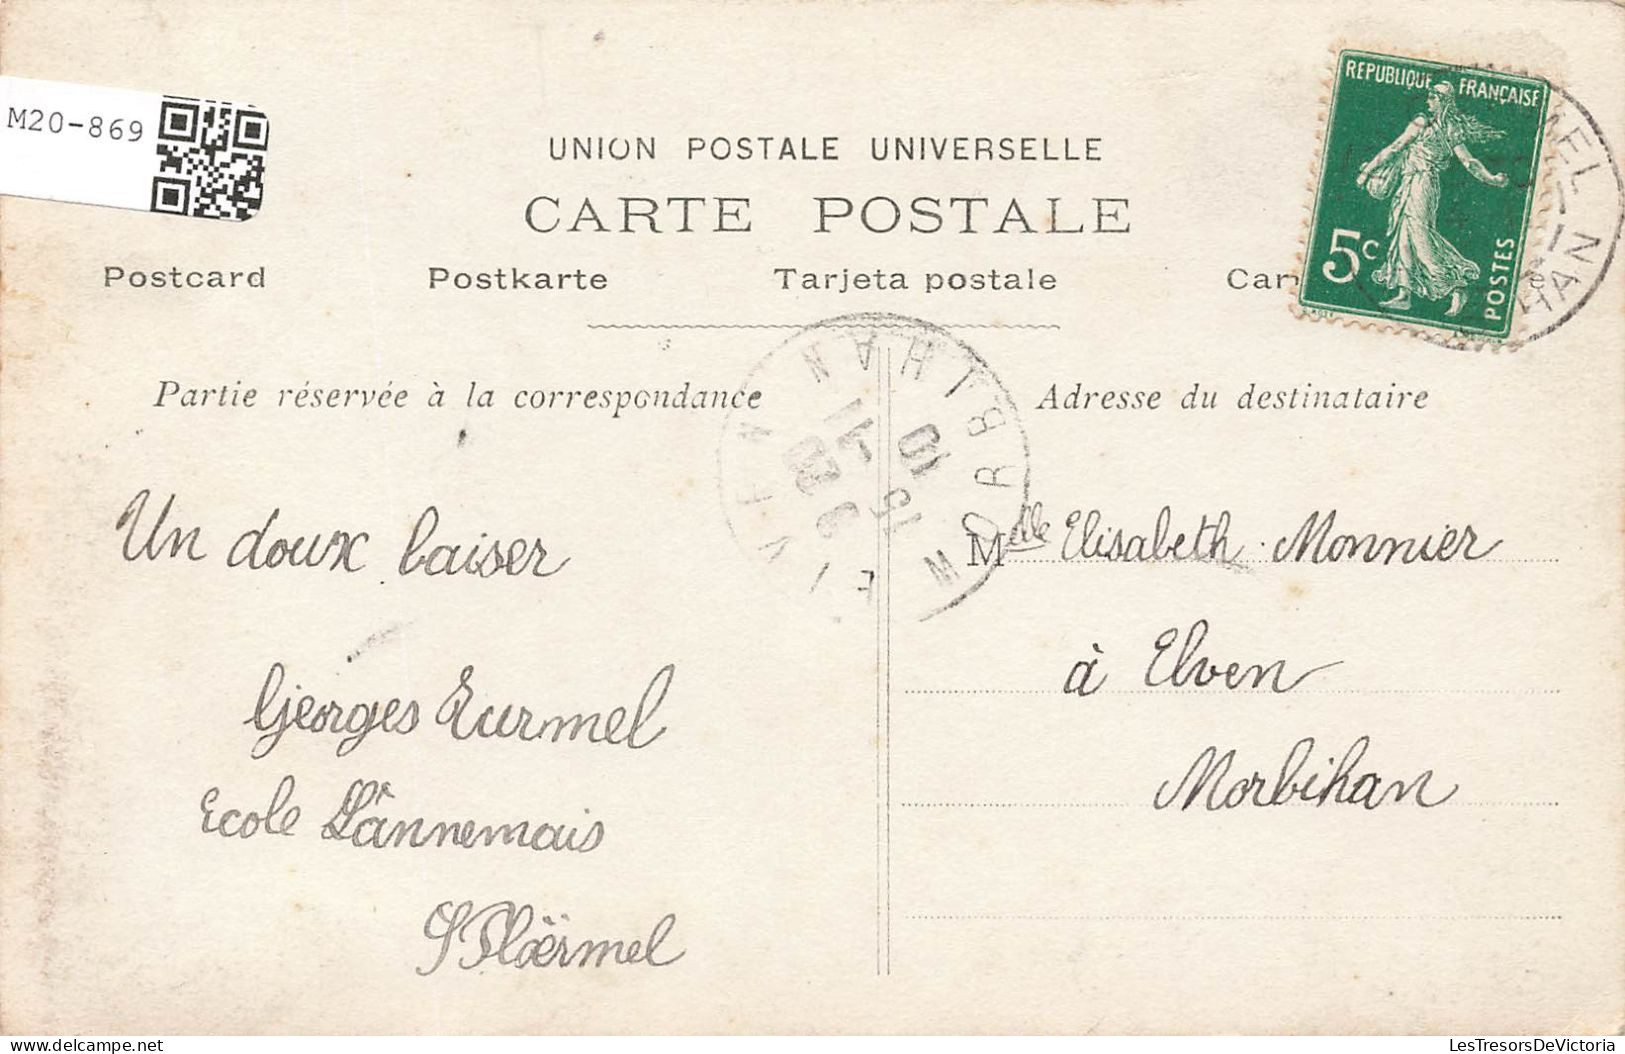 M20-869
UNION POSTALE UNIVERSELLE
CARTE POSTALE
Postcard Postkarte Tarjeta postale
REPUBLIQUE FRANÇAISE
5c
POSTES
Partie réservée à la correspondance
Adresse du destinataire
ELVEN
MORBIHAN
Un doux baiser
Georges Eurmel
Ecole Lânnemais
Ploërmel
Mdlle Elisabeth Monnier
à Elven
Morbihan
delcampe.net
LesTresorsDeVictoria